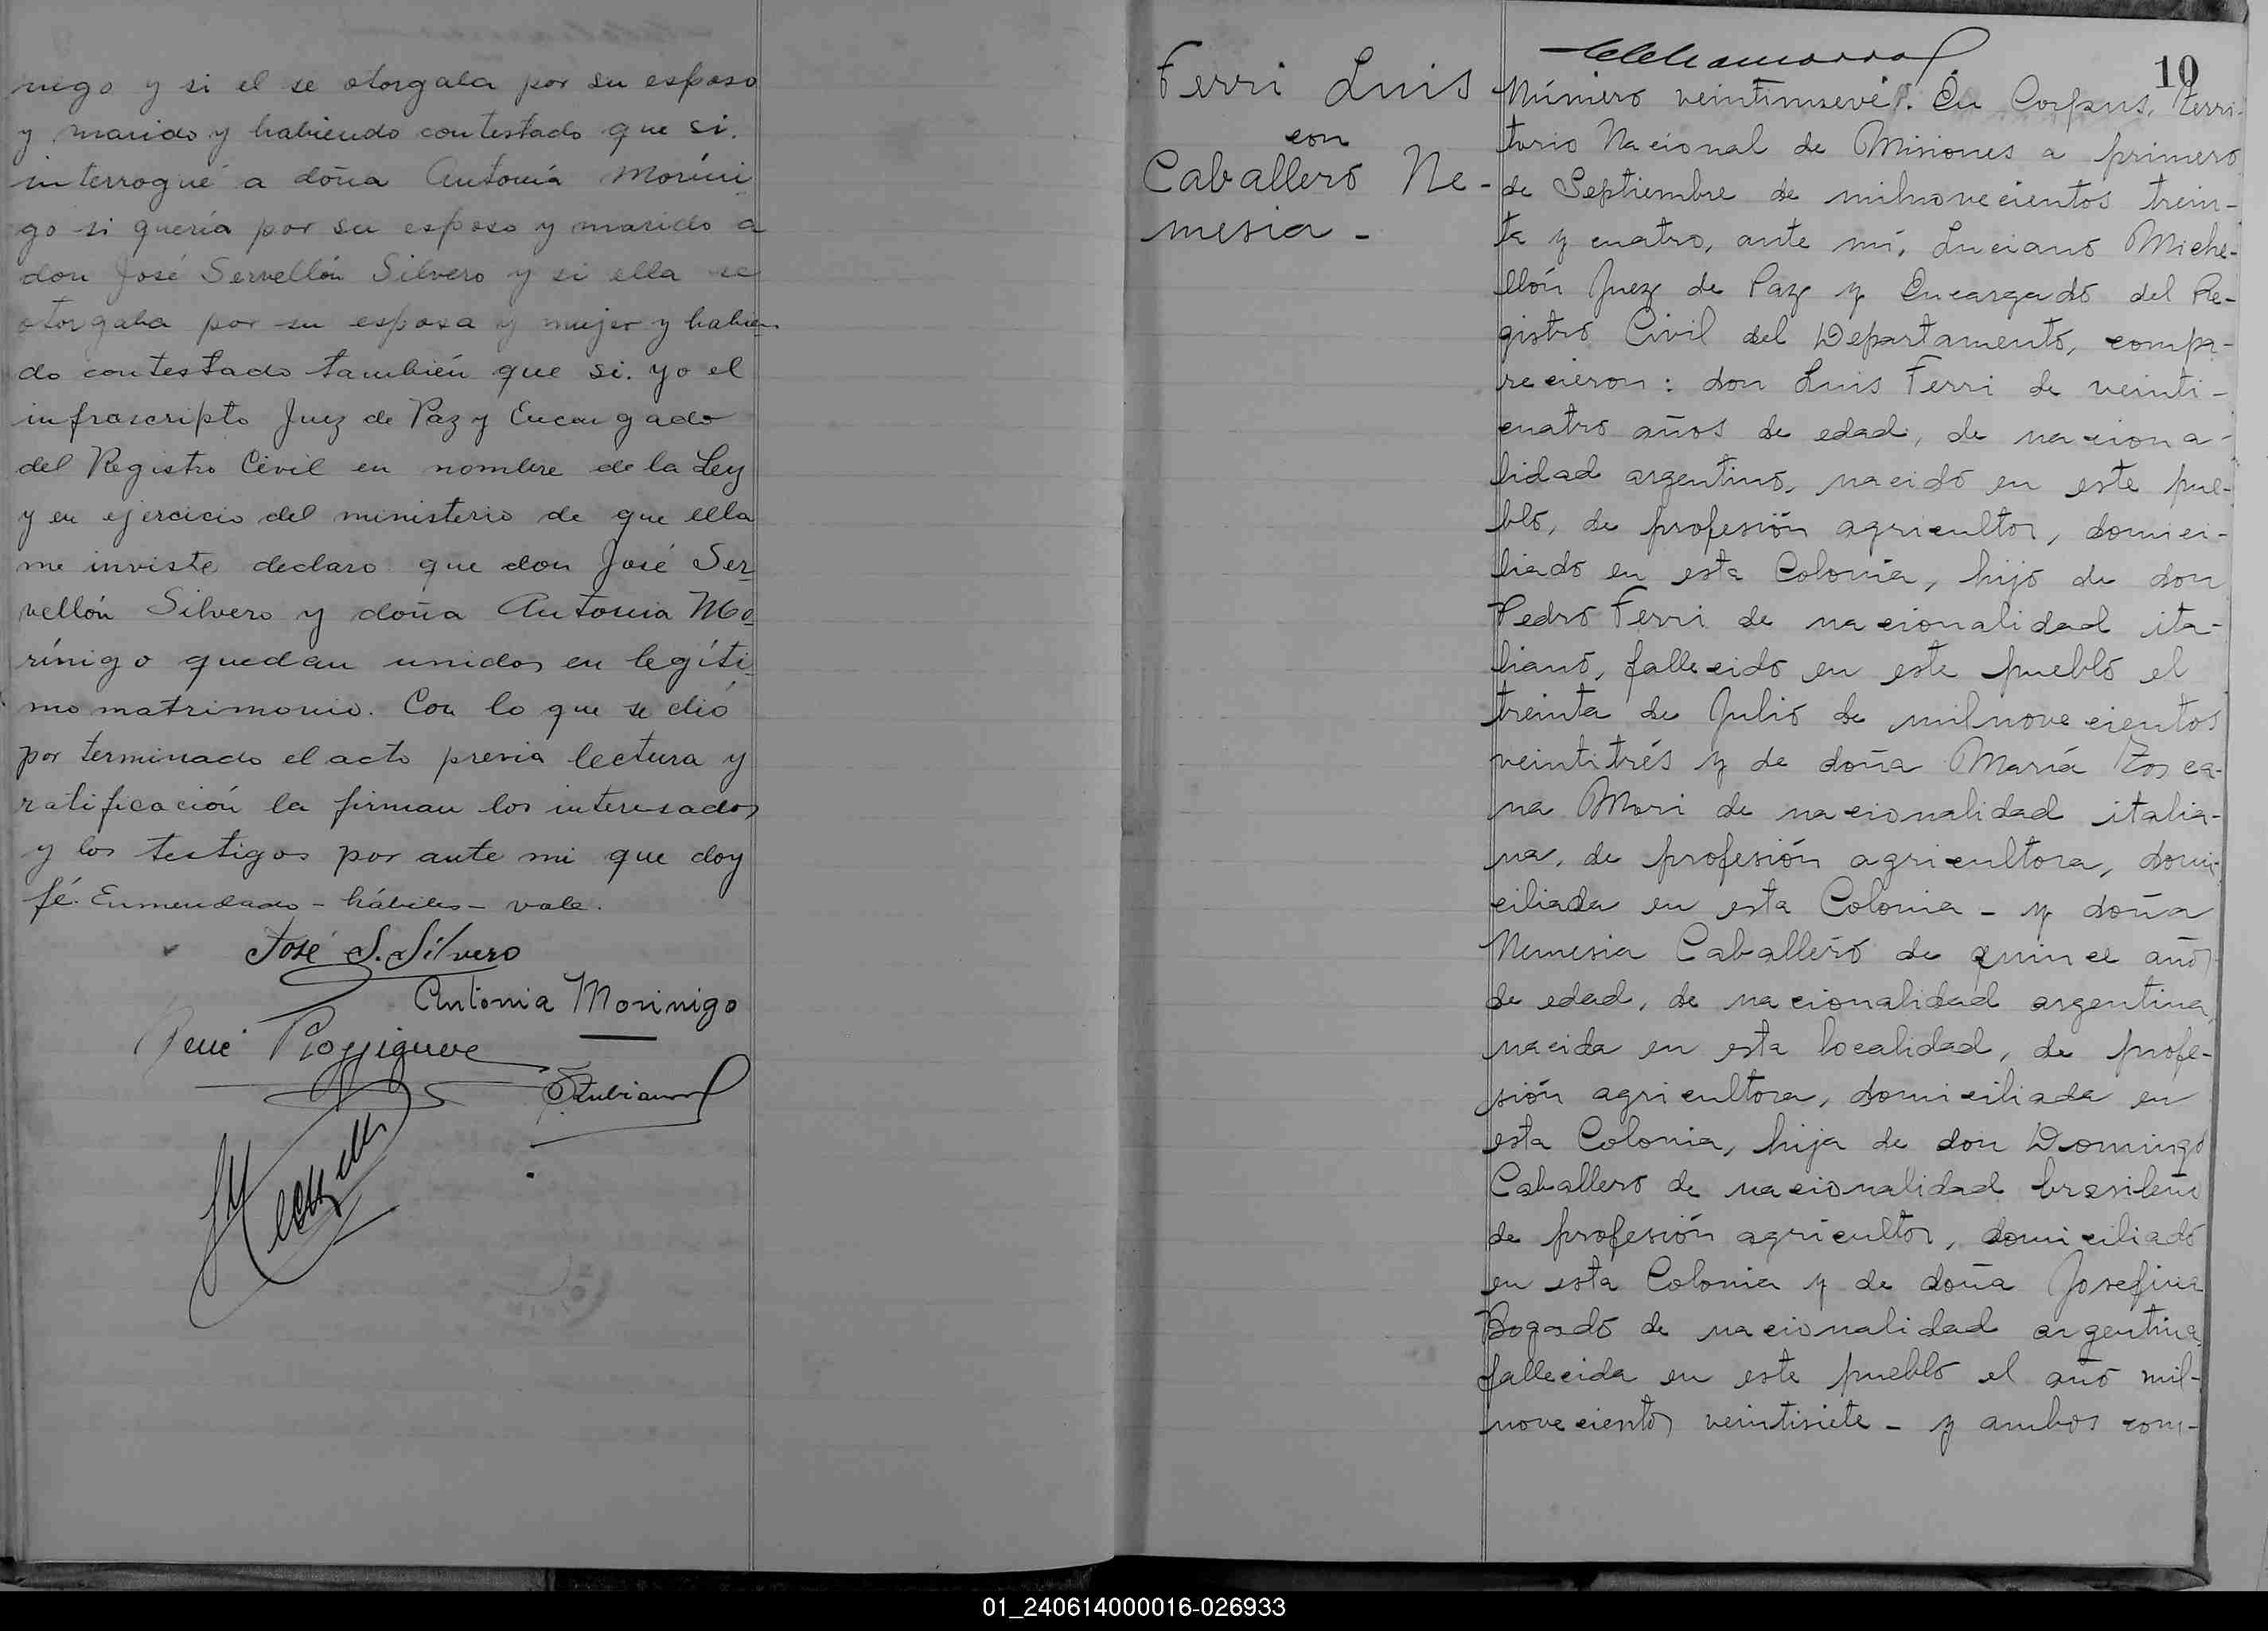 nigo y si el se otorgaba por su esposo
y marido y habiendo contestado que si.
interrogué a doña Antonia Moríni
go si quería por su esposo y marido a
don José Servellón Silvero y si ella se
otorgaba por su esposa y mujer y habien
do contestado también que si. yo el
infrascripto Juez de Paz y Encargado
del Registro Civil en nombre de la Ley
y en ejercicio del ministerio de que ella
me inviste declaro que don José Ser
vellón Silvero y doña Antonia Mo
rínigo quedan unidos en legíti
mo matrimonio. Con lo que se dió
por terminado el acto previa lectura y
ratificación la firman los interesados
y los testigos por ante mi que doy
fé. Enmendado - hábiles - vale.
José S. Silvero
Antonia Morinigo
René
Ferri Luis
con
Caballero Ne-
mesia -
10
Número veintinueve. En Corpus, terri-
torio Nacional de Misiones a primero
de Septiembre de milnovecientos trein-
ta y cuatro, ante mí, Luciano Miche-
llón Juez de Paz y Encargado del Re-
gistro Civil del Departamento, compa-
recieron: don Luis Ferri de veinti-
cuatro años de edad, de naciona-
lidad argentino, nacido en este pue-
blo, de profesión agricultor, domici-
liado en esta Colonia, hijo de don
Pedro Ferri de nacionalidad ita-
liano, fallecido en este pueblo el
treinta de Julio de milnovecientos
veintitrés y de doña María Tosca-
na Mori de nacionalidad italia-
na, de profesión agricultora, domi-
ciliada en esta Colonia - y doña
Nemesia Caballero de quince años
de edad, de nacionalidad argentina,
nacida en esta localidad, de profe-
sión agricultora, domiciliada en
esta Colonia, hija de don Domingo
Caballero de nacionalidad brasileño
de profesión agricultor, domiciliado
en esta Colonia y de doña Josefina
Bogado de nacionalidad argentina,
fallecida en este pueblo el año mil-
novecientos veintisiete - y ambos com-
01_240614000016-026933